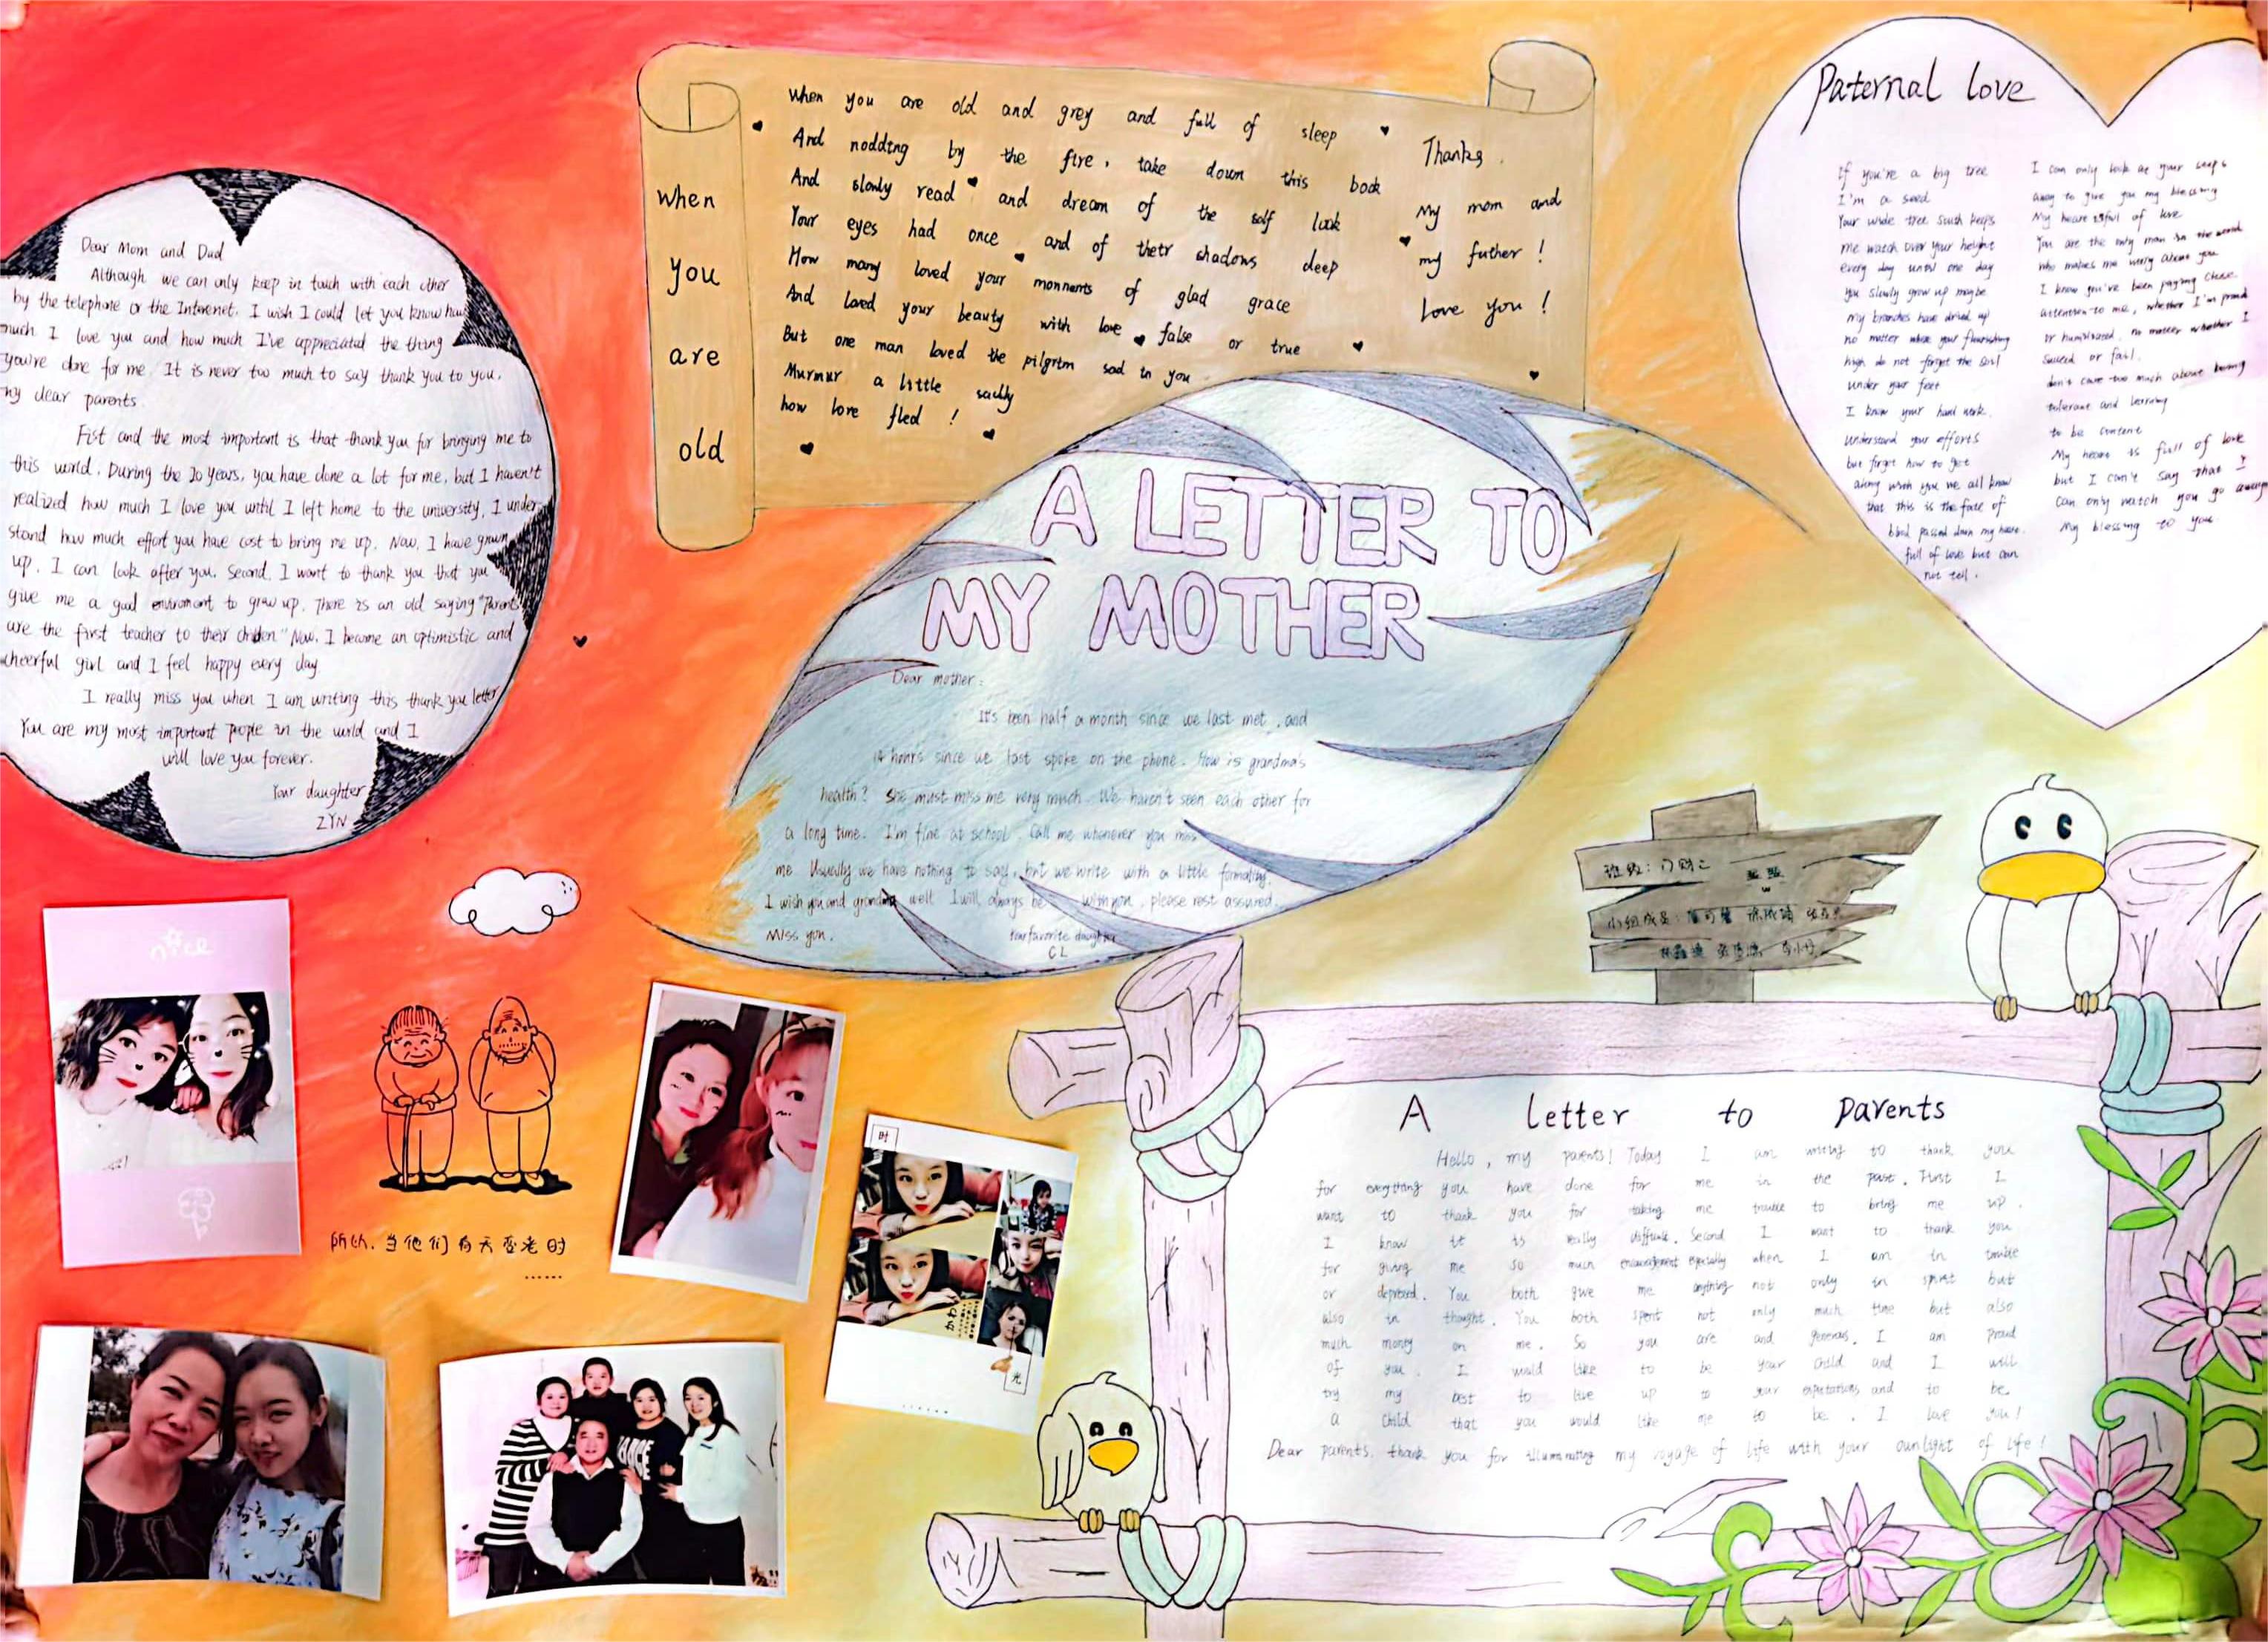 Dear Mom and Dad
Although we can only keep in touch with each other
by the telephone or the Internet, I wish I could let you know how
much I love you and how much I've appreciated the thing
you're done for me. It is never too much to say thank you to you,
my dear parents.
Fist and the most important is that thank you for bringing me to
this world. During the 20 years, you have done a lot for me, but I haven't
realized how much I love you until I left home to the university. I under-
stand how much effort you have cost to bring me up. Now, I have grown
up. I can look after you. Second, I want to thank you that you
give me a good environment to grow up. There is an old saying "Parents
are the first teacher to their children" Now, I become an optimistic and
cheerful girl and I feel happy every day
I really miss you when I am writing this thank you letter
You are my most important people in the world and I
will love you forever.
Your daughter
ZYN
when
you
are
old
When you are old and grey and full of sleep
And nodding by the fire, take down this book
And slowly read and dream of the soft look
Your eyes had once and of their shadows deep
How many loved your monnents of glad grace
And loved your beauty with love false or true
But one man loved the pilgrim sad in you
Murmur a little sadly
how love fled !
Thanks.
My mom and
my futher !
Love you !
A LETTER TO
MY MOTHER
Dear mother:
It's been half a month since we last met, and
14 hours since we last spoke on the phone. How is grandma's
health? She must miss me very much. We haven't seen each other for
a long time. I'm fine at school. Call me whenever you miss
me. Usually we have nothing to say, but we write with a little formality.
I wish you and grandma well. I will always be with you, please rest assured.
Miss you.
Your favorite daughter
CL
Paternal love
If you're a big tree
I'm a seed
Your whole tree such keeps
me watch over your height
every day until one day
you slowly grow up maybe
my branches have dried up
no matter where your flourishing
high do not forget the soil
under your feet
I know your hard work.
understand your efforts
but forget how to get
along with you we all know
that this is the fate of
blood passed down my heart
full of love but can
not tell.
I can only look at your steps
away to give you my blessing
My heart is full of love
You are the only man in the world
who makes me worry about you
I know you've been paying close
attention to me, whether I'm proud
or humiliated, no matter whether I
succeed or fail.
don't care too much about being
tolerant and learning
to be content
My heart is full of love
but I can't say that I
can only watch you go away
My blessing to you
班级:
小组成员:
A Letter to Parents
Hello, my parents! Today I am writing to thank you
for everything you have done for me in the past. First I
want to thank you for taking me trouble to bring me up.
I know it is really difficult. Second I want to thank you
for giving me so much encouragement especially when I am in trouble
or depressed. You both give me anything not only in spirit but
also in thought. You both spent not only much time but also
much money on me. So you are and generous. I am proud
of you. I would like to be your child and I will
try my best to live up to your expectations and to be
a child that you would like me to be. I love you!
Dear parents, thank you for illuminating my voyage of life with your ounlight of life!
nice
所以,当他们有天变老时
……
时
光